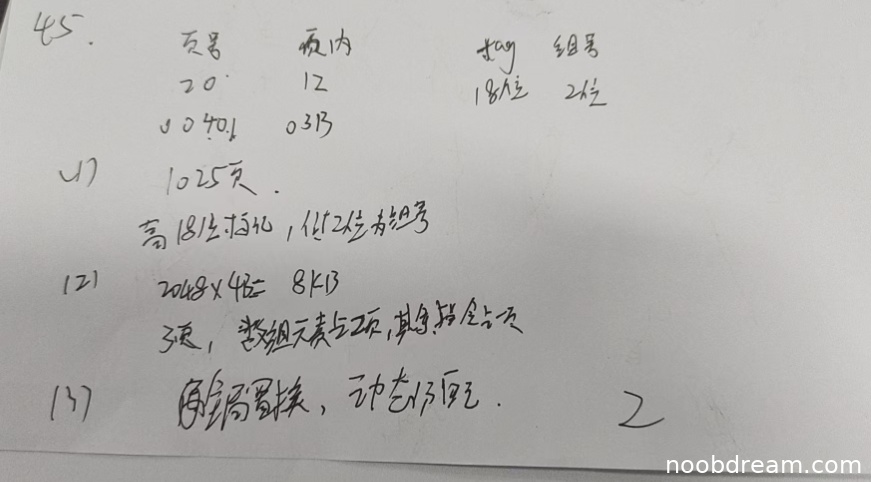 45.
页号 页内 tag 组号
20 12 18位 2位
00401 03B
(1) 1025页.
高18位标记,低2位为组号
(2) 2048×4B= 8KB
3页,数组元素占2页,其余指令占一页
(3) 局置换,动态分配.
2
noobdream.com